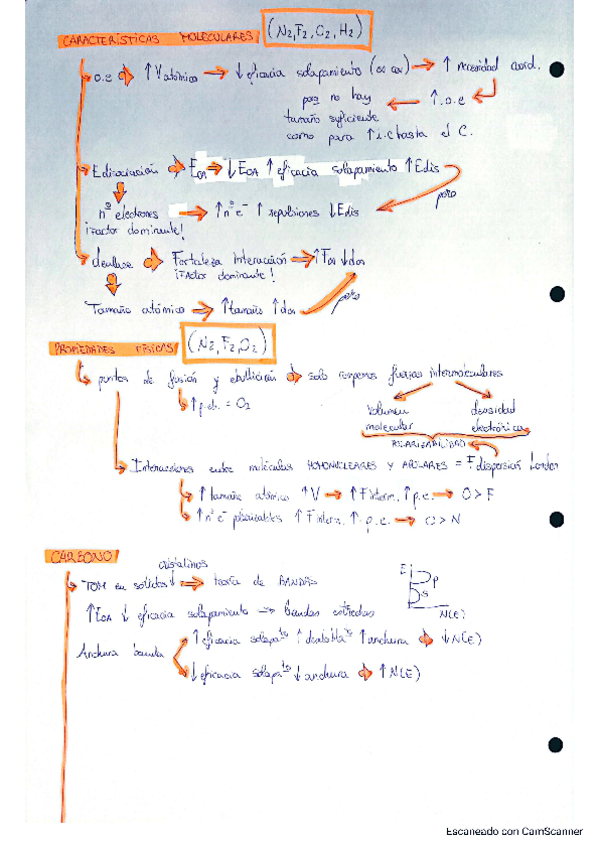 CARACTERÍSTICAS MOLECULARES (N2, F2, C2, H2)
o.e → ↑ V atómico → ↓ eficacia solapamiento (oo cov) → ↑ necesidad coord.
pero no hay ← ↑.o.e
tamaño suficiente
como para ↑ i.c hasta el C.
Edisociación → EOA → ↓ EOA ↑ eficacia solapamiento ↑ Edis
pero
nº electrones → ↑ nº e- ↑ repulsiones ↓ Edis
¡Factor dominante!
denlace → Fortaleza Interacción → ↑ ↓
¡Factor dominante!
Tamaño atómico → ↑ tamaño ↑
pero
PROPIEDADES FÍSICAS (N2, F2, O2)
puntos de fusión y ebullición → solo rompemos fuerzas intermoleculares
↑ p.eb. = O2
Volumen densidad
molecular electrónica
POLARIZABILIDAD
Interacciones entre moléculas HOMONUCLEARES Y APOLARES = F. dispersión London
↑ tamaño atómico ↑ V → ↑ F interm. ↑ p.e. → O > F
↑ nº e- polarizables ↑ F interm. ↑. p.e. → O > N
CARBONO
cristalinos
TOM en sólidos → teoría de BANDAS
E p
s
N(E)
↑ EOA ↓ eficacia solapamiento → bandas estrechas
Anchura banda
↑ eficacia solapato ↑ anchura → ↓ N(E)
↓ eficacia solapato ↓ anchura → ↑ N(E)
Escaneado con CamScanner